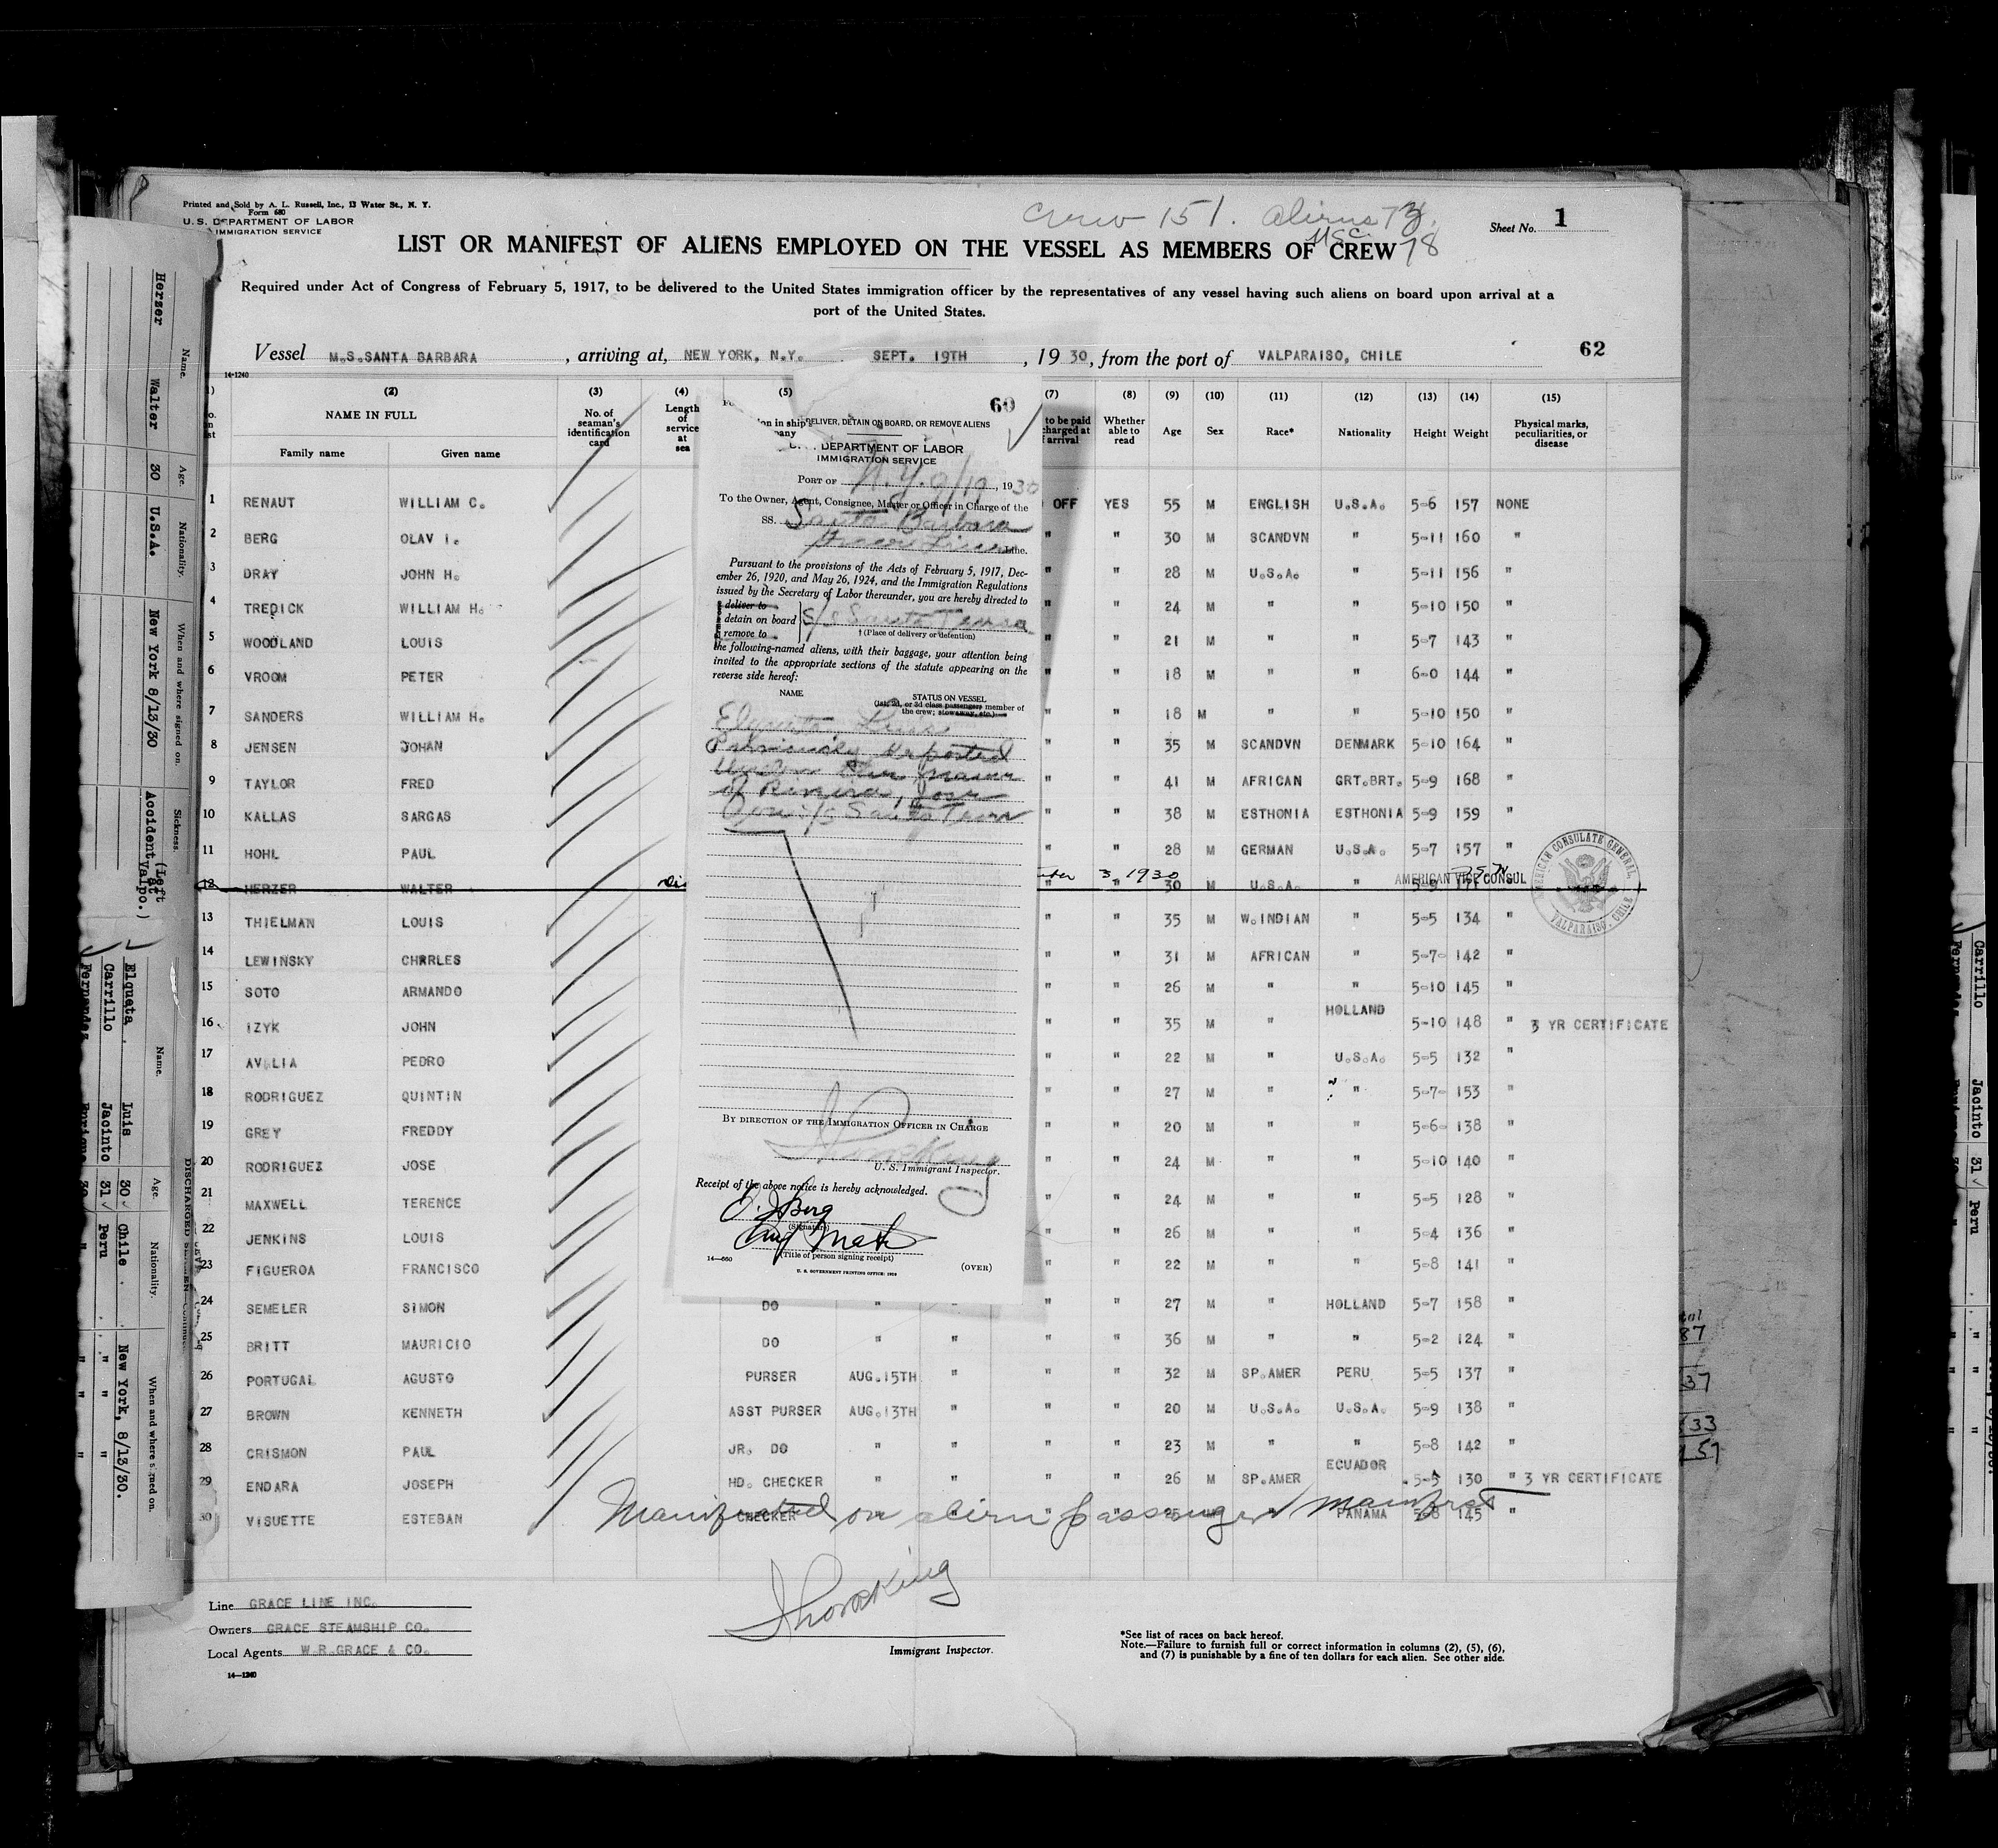 Printed and Sold by A. L. Russell, Inc., 13 Water St., N. Y.
Form 680
U. S. DEPARTMENT OF LABOR
IMMIGRATION SERVICE
Crew 151. aliens 73
USC. 78
Sheet No. 1
LIST OR MANIFEST OF ALIENS EMPLOYED ON THE VESSEL AS MEMBERS OF CREW
Required under Act of Congress of February 5, 1917, to be delivered to the United States immigration officer by the representatives of any vessel having such aliens on board upon arrival at a
port of the United States.
Vessel M.S.SANTA BARBARA, arriving at, NEW YORK, N.Y. SEPT. 19TH, 1930, from the port of VALPARAISO, CHILE 62
14-1240
(2) (3) (4) (5) (7) (8) (9) (10) (11) (12) (13) (14) (15)
NAME IN FULL
Family name Given name
No. of seaman's identification card
Length of service at sea
to be paid
Whether able to read
Age Sex Race* Nationality Height Weight
Physical marks, peculiarities, or disease
1 RENAUT WILLIAM C. OFF YES 55 M ENGLISH U.S.A. 5-6 157 NONE
2 BERG OLAV I. " " 30 M SCANDVN " 5-11 160 "
3 DRAY JOHN H. " " 28 M U.S.A. " 5-11 156 "
4 TREDICK WILLIAM H. " " 24 M " " 5-10 150 "
5 WOODLAND LOUIS " " 21 M " " 5-7 143 "
6 VROOM PETER " " 18 M " " 6-0 144 "
7 SANDERS WILLIAM H. " " 18 M " " 5-10 150 "
8 JENSEN JOHAN " " 35 M SCANDVN DENMARK 5-10 164 "
9 TAYLOR FRED " " 41 M AFRICAN GRT.BRT. 5-9 168 "
10 KALLAS SARGAS " " 38 M ESTHONIA ESTHONIA 5-9 159 "
11 HOHL PAUL " " 28 M GERMAN U.S.A. 5-7 157 "
12 HERZER WALTER 3, 1930 " 30 M U.S.A. " 5-9 AMERICAN VICE CONSUL
AMERICAN CONSULATE GENERAL
VALPARAISO, CHILE
13 THIELMAN LOUIS " " 35 M W.INDIAN " 5-5 134 "
14 LEWINSKY CHARLES " " 31 M AFRICAN " 5-7- 142 "
15 SOTO ARMANDO " " 26 M " " 5-10 145 "
16 IZYK JOHN " " 35 M " HOLLAND 5-10 148 " 3 YR CERTIFICATE
17 AVILIA PEDRO " " 22 M " U.S.A. 5-5 132 "
18 RODRIGUEZ QUINTIN " " 27 M " " 5-7- 153 "
19 GREY FREDDY " " 20 M " " 5-6- 138 "
20 RODRIGUEZ JOSE " " 24 M " " 5-10 140 "
21 MAXWELL TERENCE " " 24 M " " 5-5 128 "
22 JENKINS LOUIS " " 26 M " " 5-4 136 "
23 FIGUEROA FRANCISCO " " 22 M " " 5-8 141 "
24 SEMELER SIMON DO " " " " 27 M " HOLLAND 5-7 158 "
25 BRITT MAURICIO DO " " " " 36 M " " 5-2 124 "
26 PORTUGAL AGUSTO PURSER AUG.15TH " " " 32 M SP.AMER PERU 5-5 137 "
27 BROWN KENNETH ASST PURSER AUG.13TH " " " 20 M U.S.A. U.S.A. 5-9 138 "
28 CRISMON PAUL JR. DO " " " " 23 M " " 5-8 142 "
29 ENDARA JOSEPH HD. CHECKER " " " " 26 M SP.AMER ECUADOR 5-5 130 " 3 YR CERTIFICATE
30 VISUETTE ESTEBAN CHECKER PANAMA 5-8 145 "
Manifested on alien passenger manifest
Line GRACE LINE INC.
Owners GRACE STEAMSHIP CO.
Local Agents W.R.GRACE & CO.
14-1240
Immigrant Inspector.
*See list of races on back hereof.
Note.—Failure to furnish full or correct information in columns (2), (5), (6),
and (7) is punishable by a fine of ten dollars for each alien. See other side.
60
DELIVER, DETAIN ON BOARD, OR REMOVE ALIENS
DEPARTMENT OF LABOR
IMMIGRATION SERVICE
PORT OF N.Y. 9/19, 1930
To the Owner, Agent, Consignee, Master or Officer in Charge of the
SS. Santa Barbara
Grace Line Line.
Pursuant to the provisions of the Acts of February 5, 1917, Dec-
ember 26, 1920, and May 26, 1924, and the Immigration Regulations
issued by the Secretary of Labor thereunder, you are hereby directed to
deliver to
detain on board
remove to
S/S Santa Teresa
† (Place of delivery or detention)
the following-named aliens, with their baggage, your attention being
invited to the appropriate sections of the statute appearing on the
reverse side hereof:
NAME STATUS ON VESSEL
(1st, 2d, or 3d class passenger, member of
the crew; stowaway, etc.)
Elquata Luis
Previously deported
under the name
of Riviera, Jose
S/S Santa Teresa
BY DIRECTION OF THE IMMIGRATION OFFICER IN CHARGE
U. S. Immigrant Inspector.
Receipt of the above notice is hereby acknowledged.
O. I. Berg
(Signature)
Chief Mate
(Title of person signing receipt)
14—660
(OVER)
U. S. GOVERNMENT PRINTING OFFICE: 1929
Name. Age. Nationality. When and where signed on. Sickness.
Herzer Walter 30 U.S.A. New York 8/13/30 Accident (Left at Valpo.)
DISCHARGED SEAMEN
Name. Age. Nationality. When and where signed on.
Elquata Luis 30 Chile New York, 8/13/30.
Carrillo Jacinto 31 Peru " "
Fernandez Enrique 30 " " "
87
37
33
151
Carrillo Jacinto 31 Peru " "